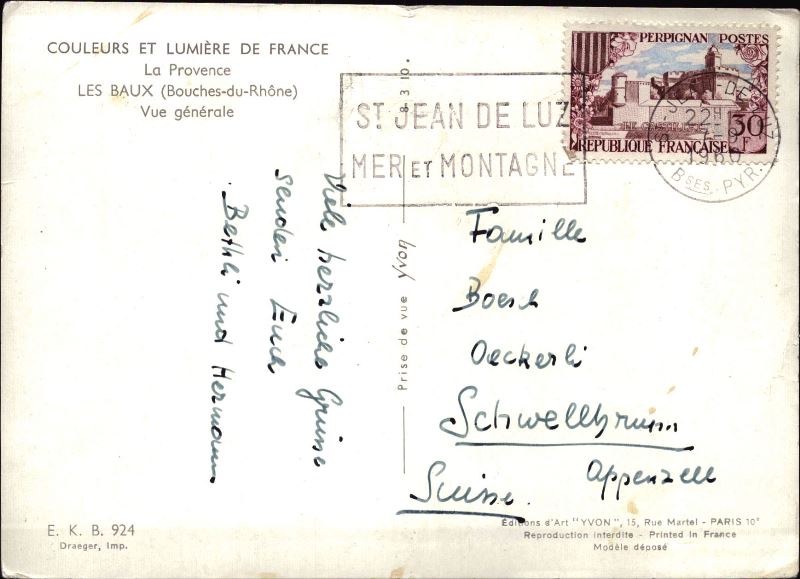 COULEURS ET LUMIÈRE DE FRANCE
La Provence
LES BAUX (Bouches-du-Rhône)
Vue générale
8.3.10.
ST JEAN DE LUZ
MER ET MONTAGNE
PERPIGNAN POSTES
LE CASTILLET
30F
RÉPUBLIQUE FRANÇAISE
22H
1960
BSES-PYR.
Viele herzliche Grüsse
senden Euch
Bethli und Hermann
Prise de vue Yvon
Famille
Boesch
Oeckerli
Schwellbrunn
Appenzell
Suisse.
E. K. B. 924
Draeger, Imp.
Éditions d'Art "YVON", 15, Rue Martel - PARIS 10e
Reproduction interdite - Printed in France
Modèle déposé